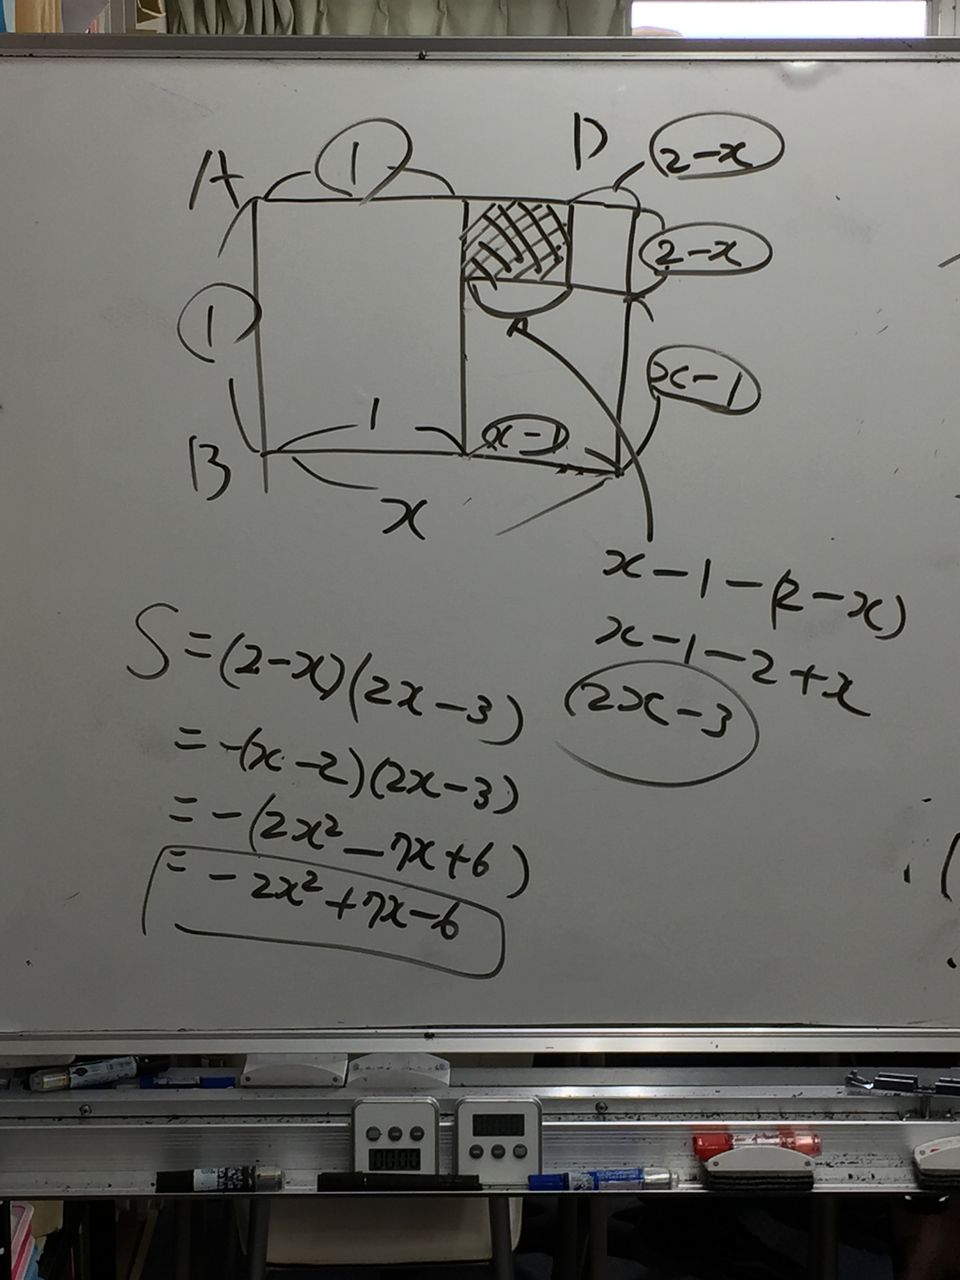 A
1
D
2-x
2-x
1
x-1
1
x-1
B
x
x-1-(2-x)
x-1-2+x
2x-3
S=(2-x)(2x-3)
=-(x-2)(2x-3)
=-(2x²-7x+6)
=-2x²+7x-6